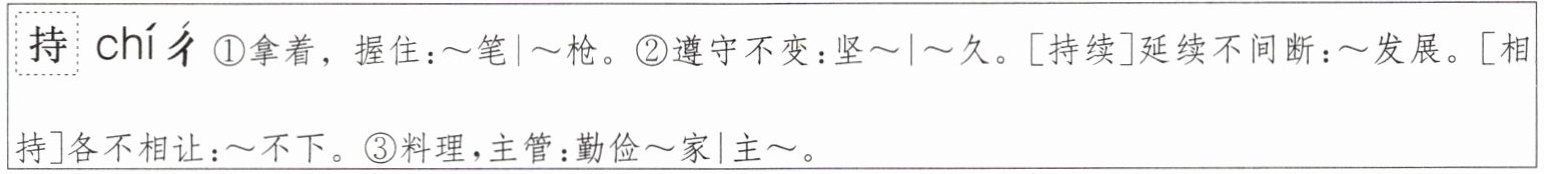 持 chí ㄔˊ ①拿着，握住:～笔|～枪。②遵守不变:坚～|～久。[持续]延续不间断:～发展。[相
持]各不相让:～不下。③料理,主管:勤俭～家|主～。